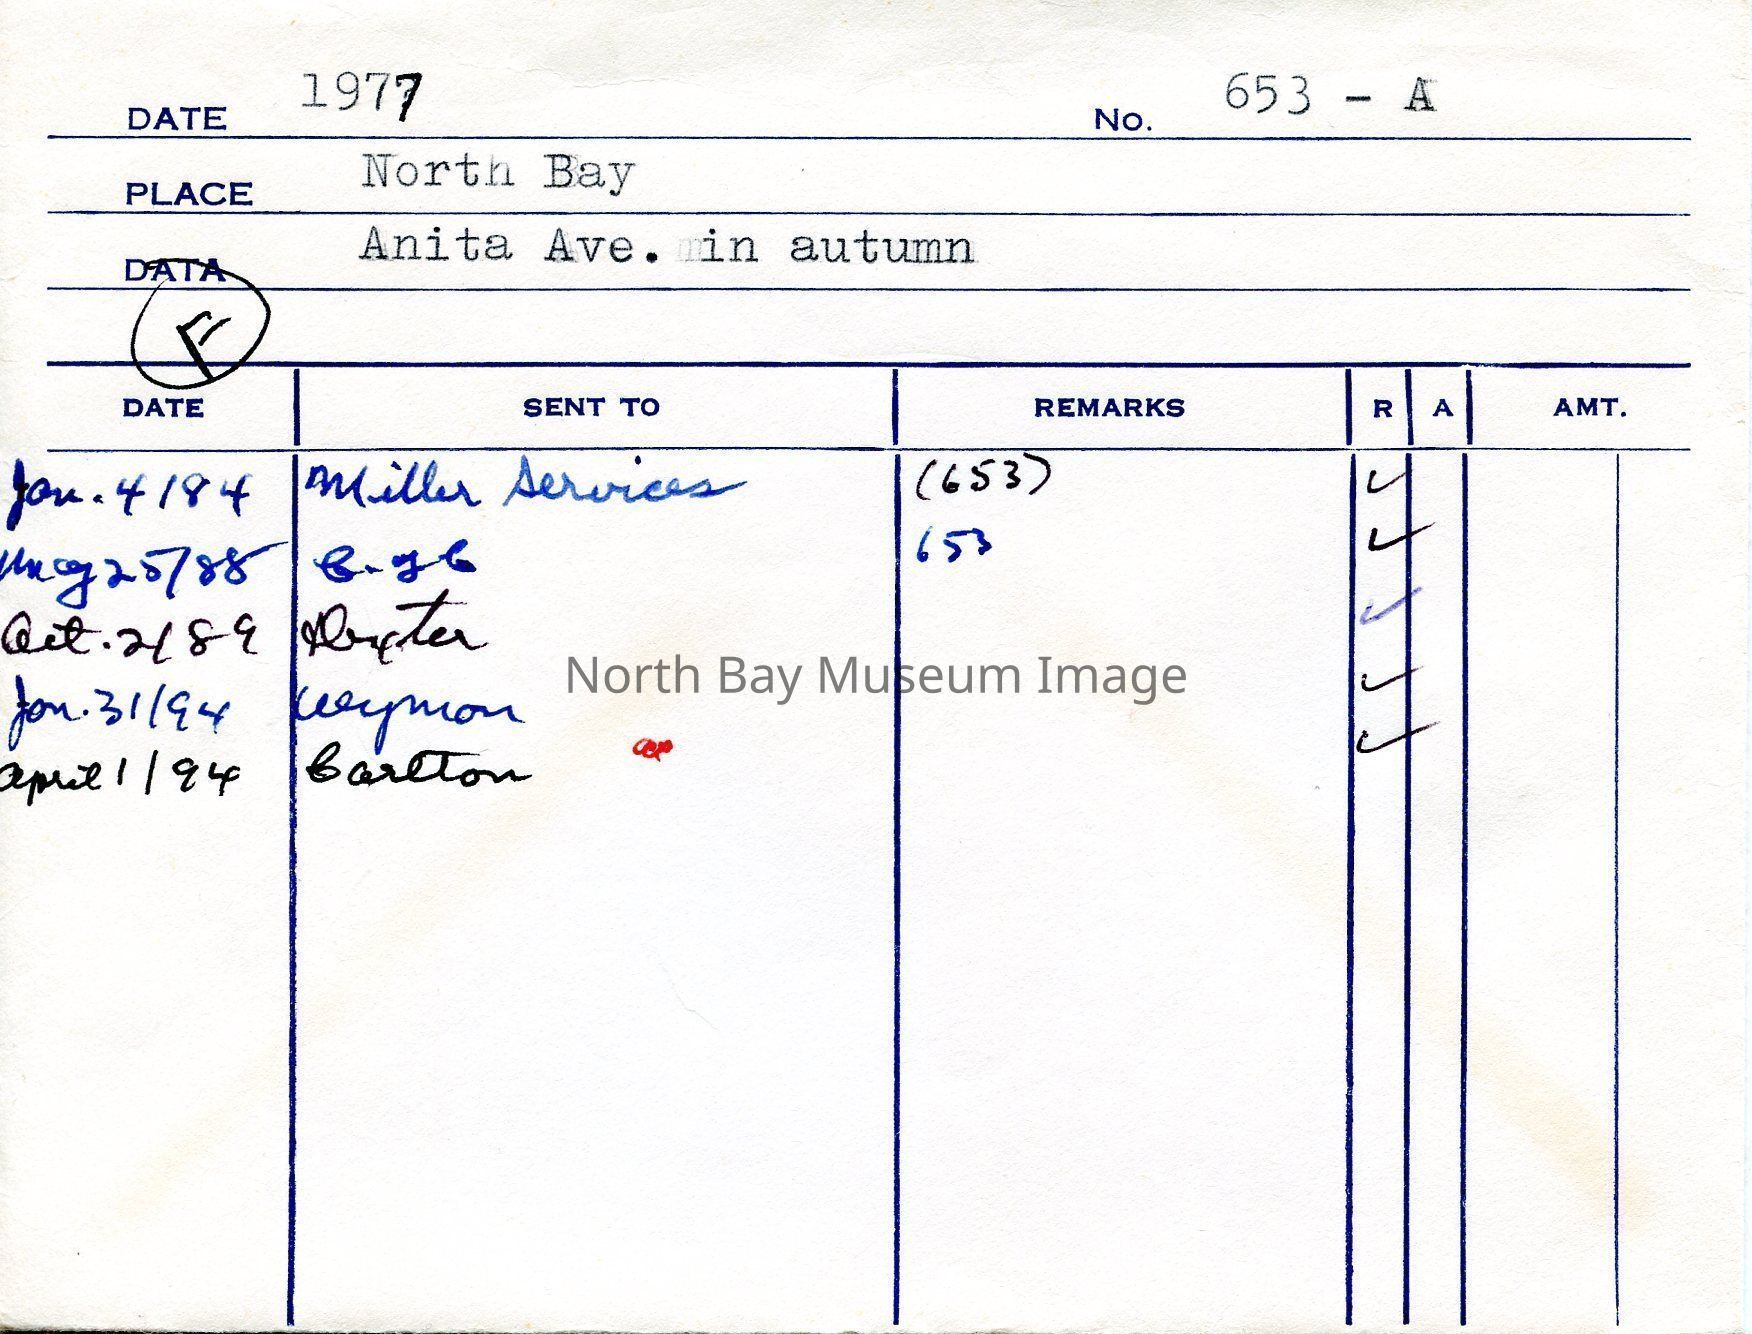 DATE 1977 No. 653 - A
PLACE North Bay
DATA Anita Ave. in autumn
F
DATE SENT TO REMARKS R A AMT.
Jan. 4/84 Miller Services (653) ✓
May 25/88 C. of C 653 ✓
Oct. 2/89 Dexter ✓
North Bay Museum Image
Jan. 31/94 Weymon ✓
April 1/94 Carlton ✓